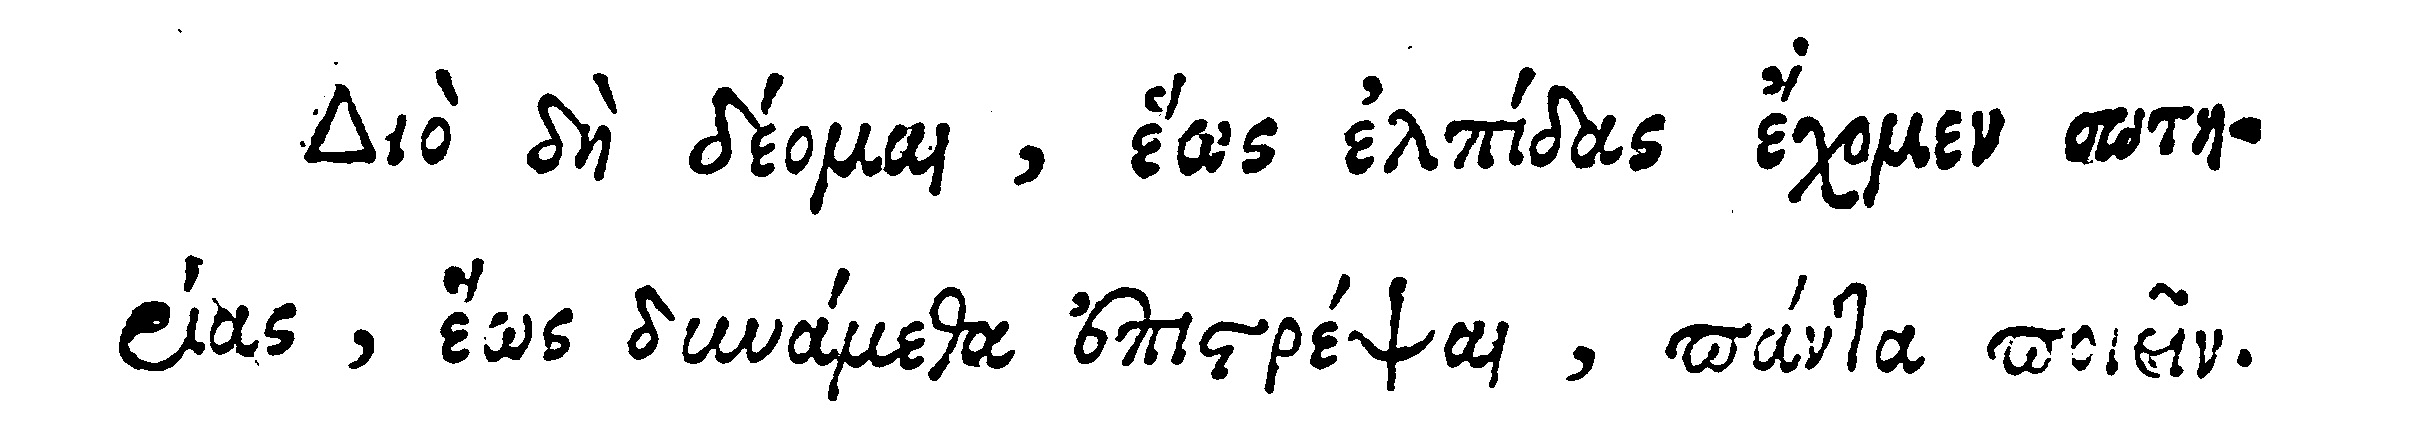 Διὸ δὴ δέομαι, ἕως ἐλπίδας ἔχομεν σωτη-
ρίας, ἕως δυνάμεθα ἐπιστρέψαι, πάντα ποιεῖν.